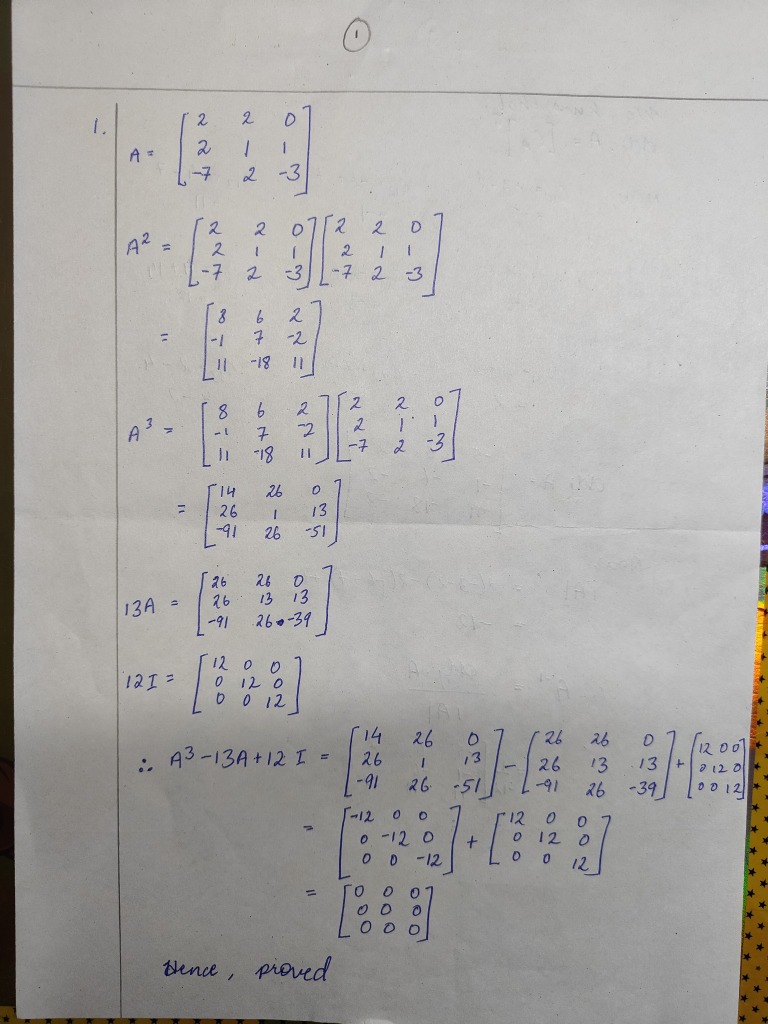 1
1.
A = [2 2 0
2 1 1
-7 2 -3]
A² = [2 2 0
2 1 1
-7 2 -3] [2 2 0
2 1 1
-7 2 -3]
= [8 6 2
-1 7 -2
11 -18 11]
A³ = [8 6 2
-1 7 -2
11 -18 11] [2 2 0
2 1 1
-7 2 -3]
= [14 26 0
26 1 13
-91 26 -51]
13A = [26 26 0
26 13 13
-91 26 -39]
12I = [12 0 0
0 12 0
0 0 12]
∴ A³ - 13A + 12 I = [14 26 0
26 1 13
-91 26 -51] - [26 26 0
26 13 13
-91 26 -39] + [12 0 0
0 12 0
0 0 12]
= [-12 0 0
0 -12 0
0 0 -12] + [12 0 0
0 12 0
0 0 12]
= [0 0 0
0 0 0
0 0 0]
Hence, proved